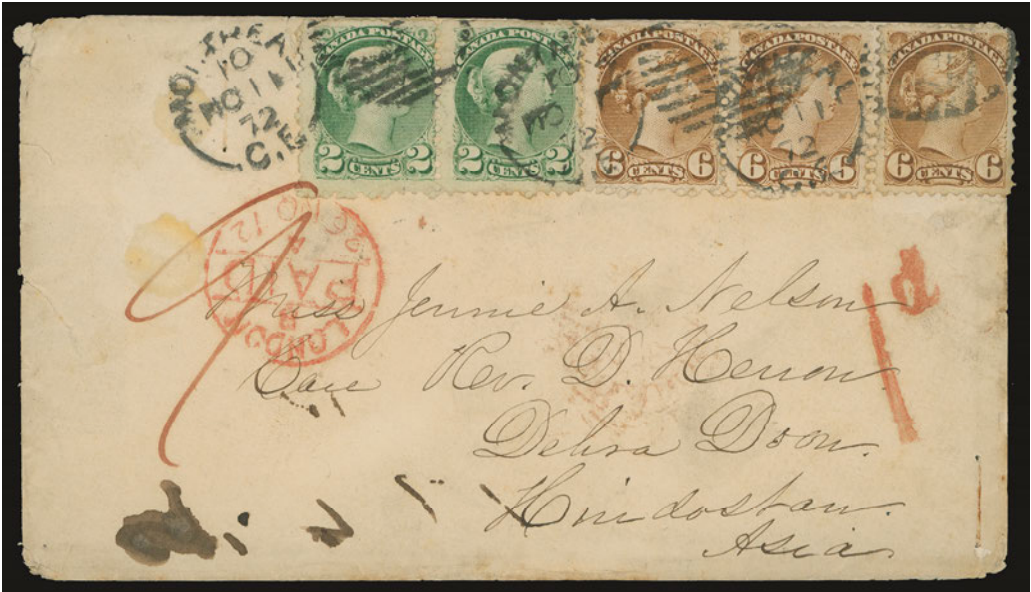 MONTREAL
10
NO 11
72
C.E
CANADA POSTAGE
2 CENTS 2
CANADA POSTAGE
2 CENTS 2
CANADA POSTAGE
6 CENTS 6
CANADA POSTAGE
6 CENTS 6
CANADA POSTAGE
6 CENTS 6
MONTREAL
NO 11
72
LONDON
PAID
1d
Miss Jennie A. Nelson
Care Rev. D. Herron
Dehra Doon.
Hindostan.
Asia